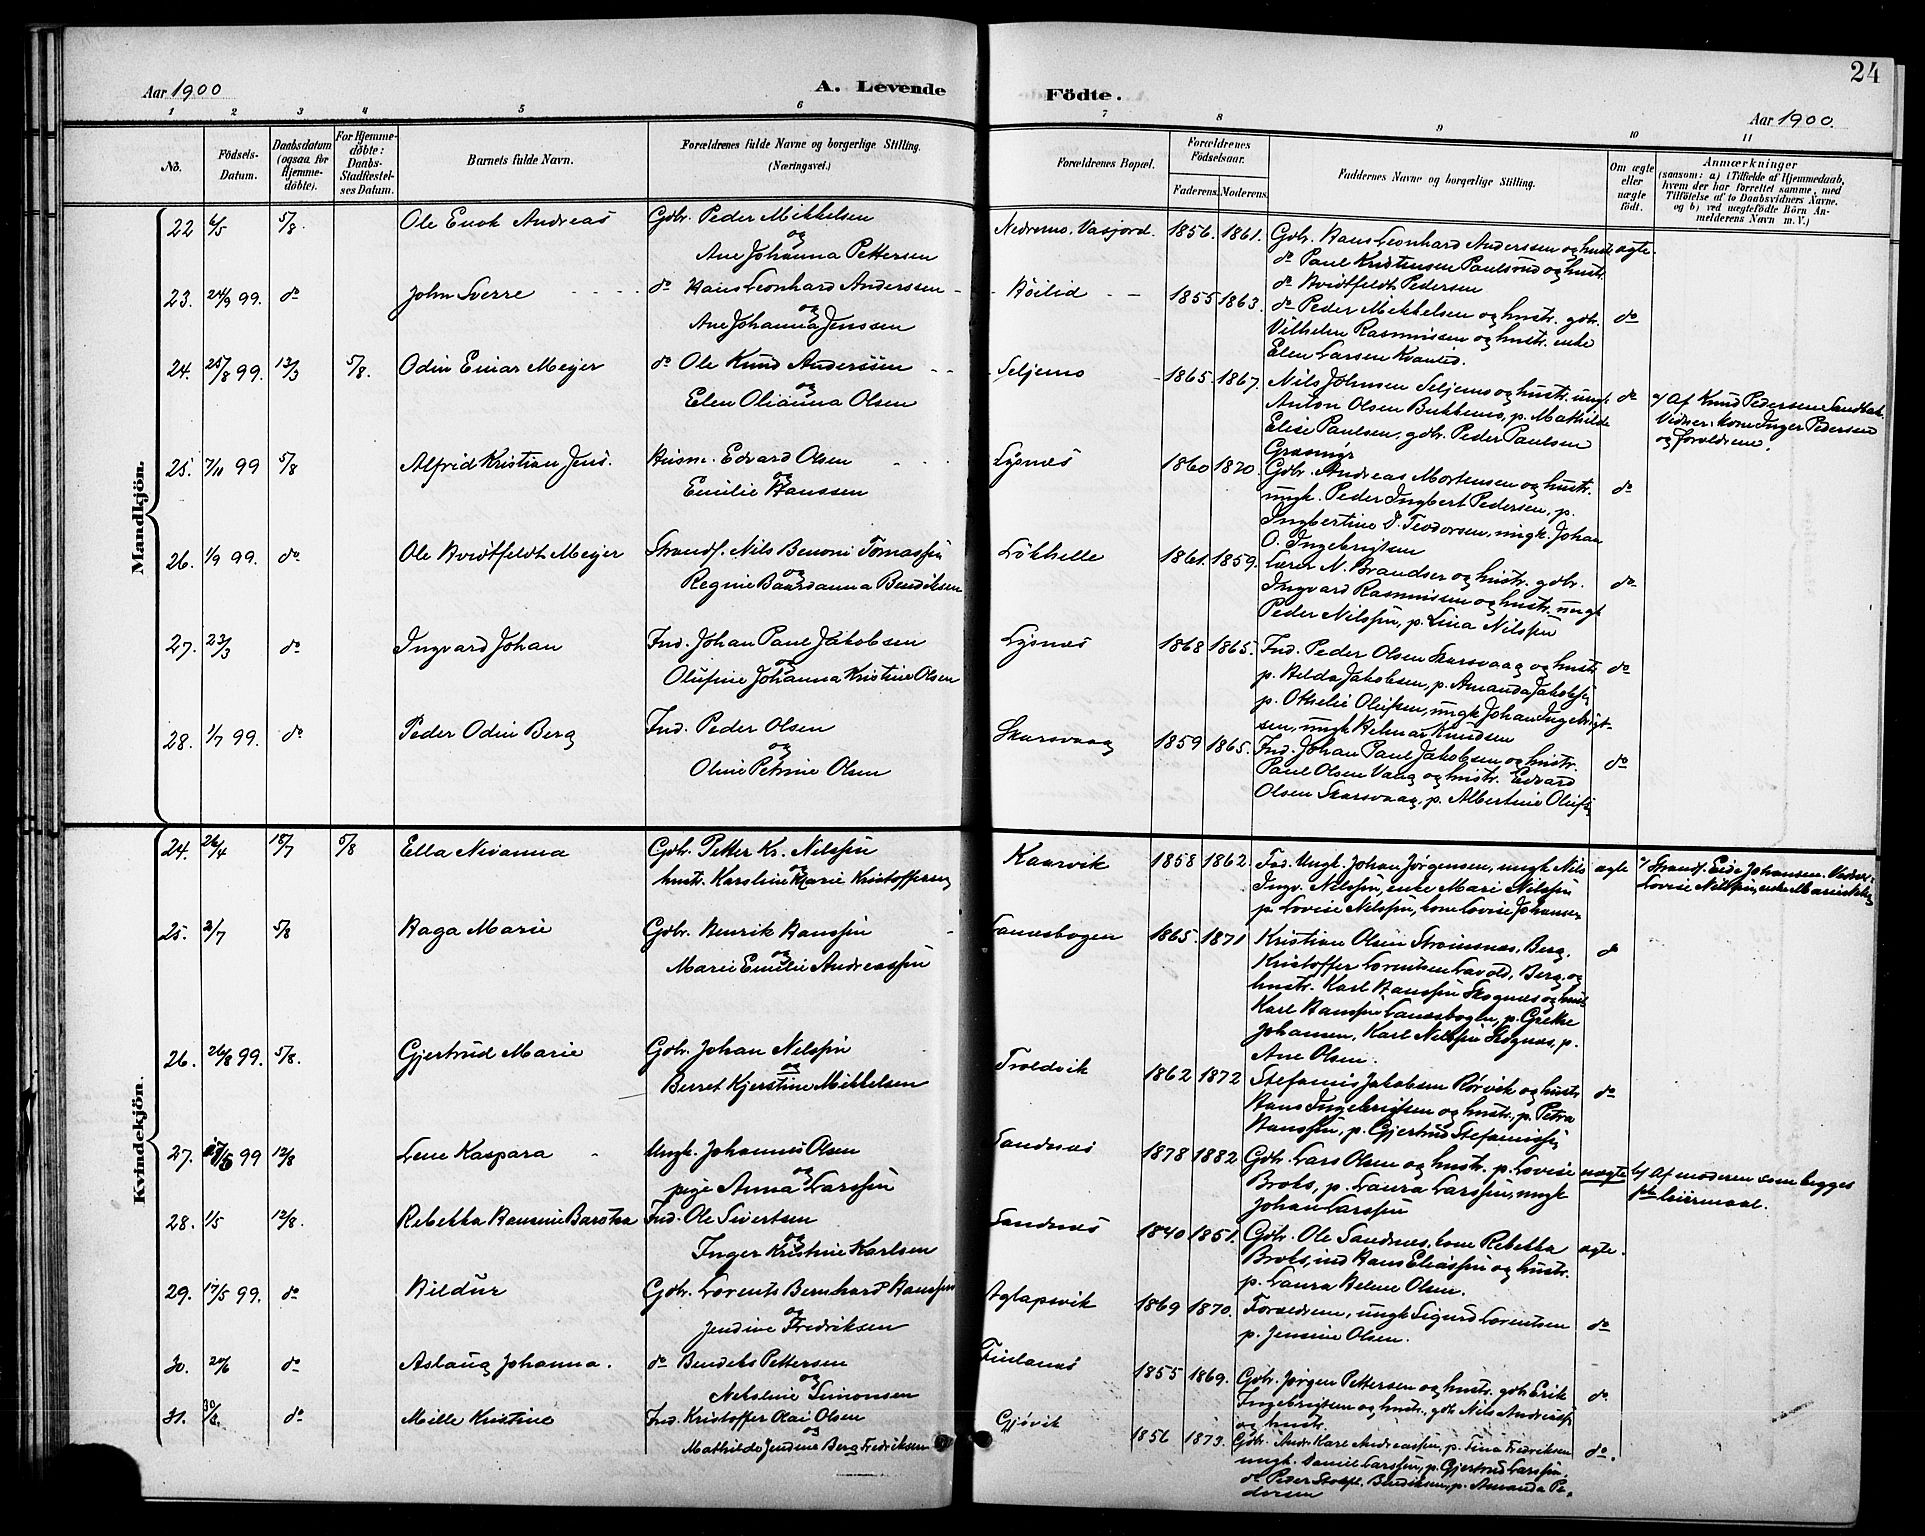 24
Aar 1900
A. Levende
Födte.
Aar 1900.
1 2 3 4 5 6 7 8 9 10 11
No.
Födsels-
Datum.
Daabsdatum
(ogsaa for
Hjemme-
döbte).
For Hjemme-
döbte:
Daabs-
Stadfæstel-
ses Datum.
Barnets fulde Navn.
Forældrenes fulde Navne og borgerlige Stilling.
(Næringsvei.)
Forældrenes Bopæl.
Forældrenes
Födselsaar.
Faderens. Moderens.
Faddernes Navne og borgerlige Stilling.
Om ægte
eller
uægte
födt.
Anmærkninger
(saasom: a) i Tilfælde af Hjemmedaab,
hvem der har forrettet samme, med
Tilföielse af to Daabsvidners Navne.
og b) ved uægtefödte Börn An-
melderens Navn m. V.)
Mandkjön.
22 6/5 5/8. Ole Enok Andreas
Gdbr. Peder Mikkelsen
og
Ane Johanna Pettersen
Nedremo, Vasjord. 1856. 1861.
Gdbr. Hans Leonhard Anderssen og hustr. ægte.
do Paul Kristensen Paulsrud og hustr.
do Hvidtfeldt Pedersen
23. 24/9 99. do John Sverre
do Hans Leonhard Anderssen
og
Ane Johanna Jenssen
Höilid 1855 1863.
do Peder Mikkelsen og hustr. gdbr. do
Vilhelm Rasmussen og hustr. enke
Elen Larsen Kvanlid.
24. 25/8 99. 13/3 5/8. Odin Einar Meyer
do Ole Knud Anderssen
og
Elen Olianna Olsen
Seljemo 1865 1867.
Nils Johnsen Seljemo og hustr. ungk. do
Anton Olsen Bukkemo, p. Mathilde
Elise Paulsen, gdbr. Peder Paulsen
Grasmyr
a/ Af Knud Pedersen Sandbak
Vidner: kone Inger Pedersen
og forældrene.
25. 7/11 99 5/8 Alfrid Kristian Jens.
Husm. Edvard Olsen
og
Emilie Hanssen
Lysnes 1860 1870.
Gdbr. Andreas Mortensen og hustr. do
ungk. Peder Ingbert Pedersen, p.
Ingbertine D. Teodorsen, ungk. Johan
O. Ingebrigtsen
26. 1/9 99. do Ole Hvidtfeldt Meyer
Strands. Nils Benoni Tomassen
og
Regine Baardanna Bendiksen
Løkhelle 1861. 1859.
Lærer N. Brandser og hustr. gdbr. do
Ingvard Rasmussen og hustr. ungk
Peder Nilssen, p. Lina Nilssen
27. 23/3 do Ingvard Johan
Ind. Johan Paul Jakobsen
og
Olufine Johanna Kristine Olsen
Lysnes 1868 1865.
Ind. Peder Olsen Skarsvaag og hustr. do
p. Hilda Jakobsen, p. Amanda Jakobsen
p. Othelie Olufsen, ungk Johan Ingebrigt-
sen, ungk Helmar Knudsen
28. 1/7 99. do Peder Odin Berg
Ind. Peder Olsen
og
Oline Petrine Olsen
Skarsvaag 1859 1865.
Ind. Johan Paul Jakobsen og hustr. do
Paul Olsen Vang og hustr. Edvard
Olsen Skarsvaag, p. Albertine Olufs
Kvindekjön.
24. 26/4 18/7 5/8 Ella Nivanna
Gdbr. Petter Kr. Nilssen
og
hustr. Karoline Marie Kristoffersen
Kaarvik 1858 1862.
Ind. Ungk. Johan Jørgensen, ungk Nils ægte
Ingv. Nilssen, enke Mari Nilssen
p. Lovise Nilssen, kone Lovise Johansen
a/ Strands. Eide Johansen. Vidner:
Lovise Nilssen,
25. 2/7 5/8 Haga Marie
Gdbr. Henrik Hanssen
og
Marie Emilie Andreassen
Lanesbogen 1865. 1871
Kristian Olsen Straumsnes, Berg. do
Kristoffer Lorentsen Lavold, Berg, og
hustr. Karl Hanssen Skognes og hust
Karl Hanssen Lanesbogen, p. Grethe
Johansen, Karl Nilssen Skognes, p.
Ane Olsen.
26. 26/8 99. 5/8. Gjertrud Marie
Gdbr. Johan Nilssen
og
Berret Kjerstine Mikkelsen
Troldvik 1862 1872
Stefanus Jakobsen Rørvik og hustr do
Hans Ingebrigtsen og hustr., p. Petra
Hanssen, p. Gjertrud Stefanussen
27. 17/5 99 12/8 Lene Kaspara
Ungk. Johannes Olsen
og
pige Anna Larssen
Sandnes 1878 1882
Gdbr. Lars Olsen og hustr. p. Lovise uægte
Broks, p. Laura Larssen, ungk
Johan Larssen
b/ Af moderen som begges
1ste leiermaal.
28. 1/5 12/8. Rebekka Hansine Barotea
Ind. Ole Sivertsen
og
Inger Kristine Karlsen
Sandnes 1840 1851.
Gdbr. Ole Sandnes, kone Rebekka ægte.
Broks, ind Hans Eliassen og hustr.
p. Laura Helene Olsen.
29. 17/5 99. do Hildur
Gdbr. Lorents Bernhard Hanssen
og
Jendine Fredriksen
Aglapsvik 1869 1870.
Forældrene, ungk Sigurd Lorentsen do
p. Jensine Olsen.
30. 20/6 do Aslaug Johanna.
do Bendeks Pettersen
og
Nekoline Simonsen
Finlanes 1855 1869.
Gdbr. Jørgen Pettersen og hustr. gdb Erik do.
Ingebrigtsen og hustr., gdb Nils Andreass
og hustr.
31. do Mille Kristine
Ind. Kristoffer Olai Olsen
og
Mathilde Jensine Berg Fredriksen
Gjövik 1856 1873.
Gdbr. Andr. Karl Andreassen, p. Tina Fredriksen do.
ungk. Daniel Larssen, p. Gjertrud Larssen.
do Peder Bendiksen, p. Amanda Pe-
dersen